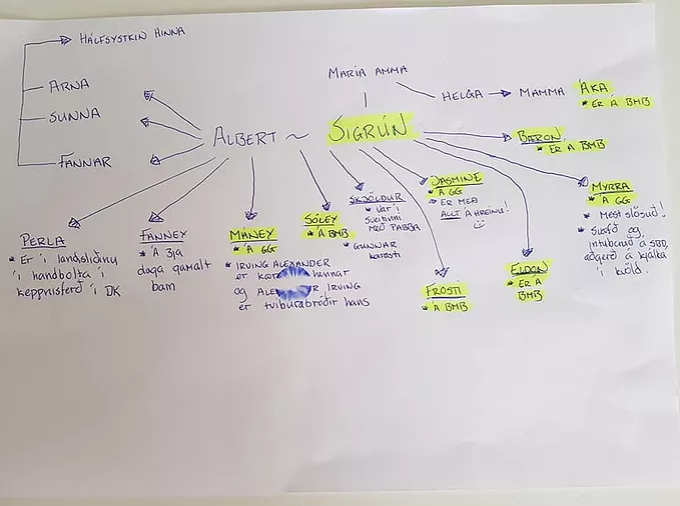 HÁLFSYSTKIN HINNA
ARNA
SUNNA
FANNAR
ALBERT ~ SIGRÚN
MARIA AMMA
HELGA → MAMMA ÁKA
* ER Á BMB
BARON
* ER Á BMB
MYRRA
* Á GG
* Mest slösuð!
* Svæfð og
intuberuð á SBD,
aðgerð á kjálka
í kvöld.
JASMINE
* Á GG
→ ER MEÐ
ALLT Á HREINU!
SKJÖLDUR
* VAR Í
sveitinni
MEÐ PABBA
* GUNNAR
SÓLEY
* Á BMB
MÁNEY
* Á GG
* IRVING ALEXANDER
er hennar
og IRVING
er tvíburabróðir hans
FANNEY
* Á 3ja
daga gamalt
barn
PERLA
* Er í landsliðinu
í handbolta í
keppnisferð í DK
FROSTI
* Á BMB
ELDON
* ER Á
BMB